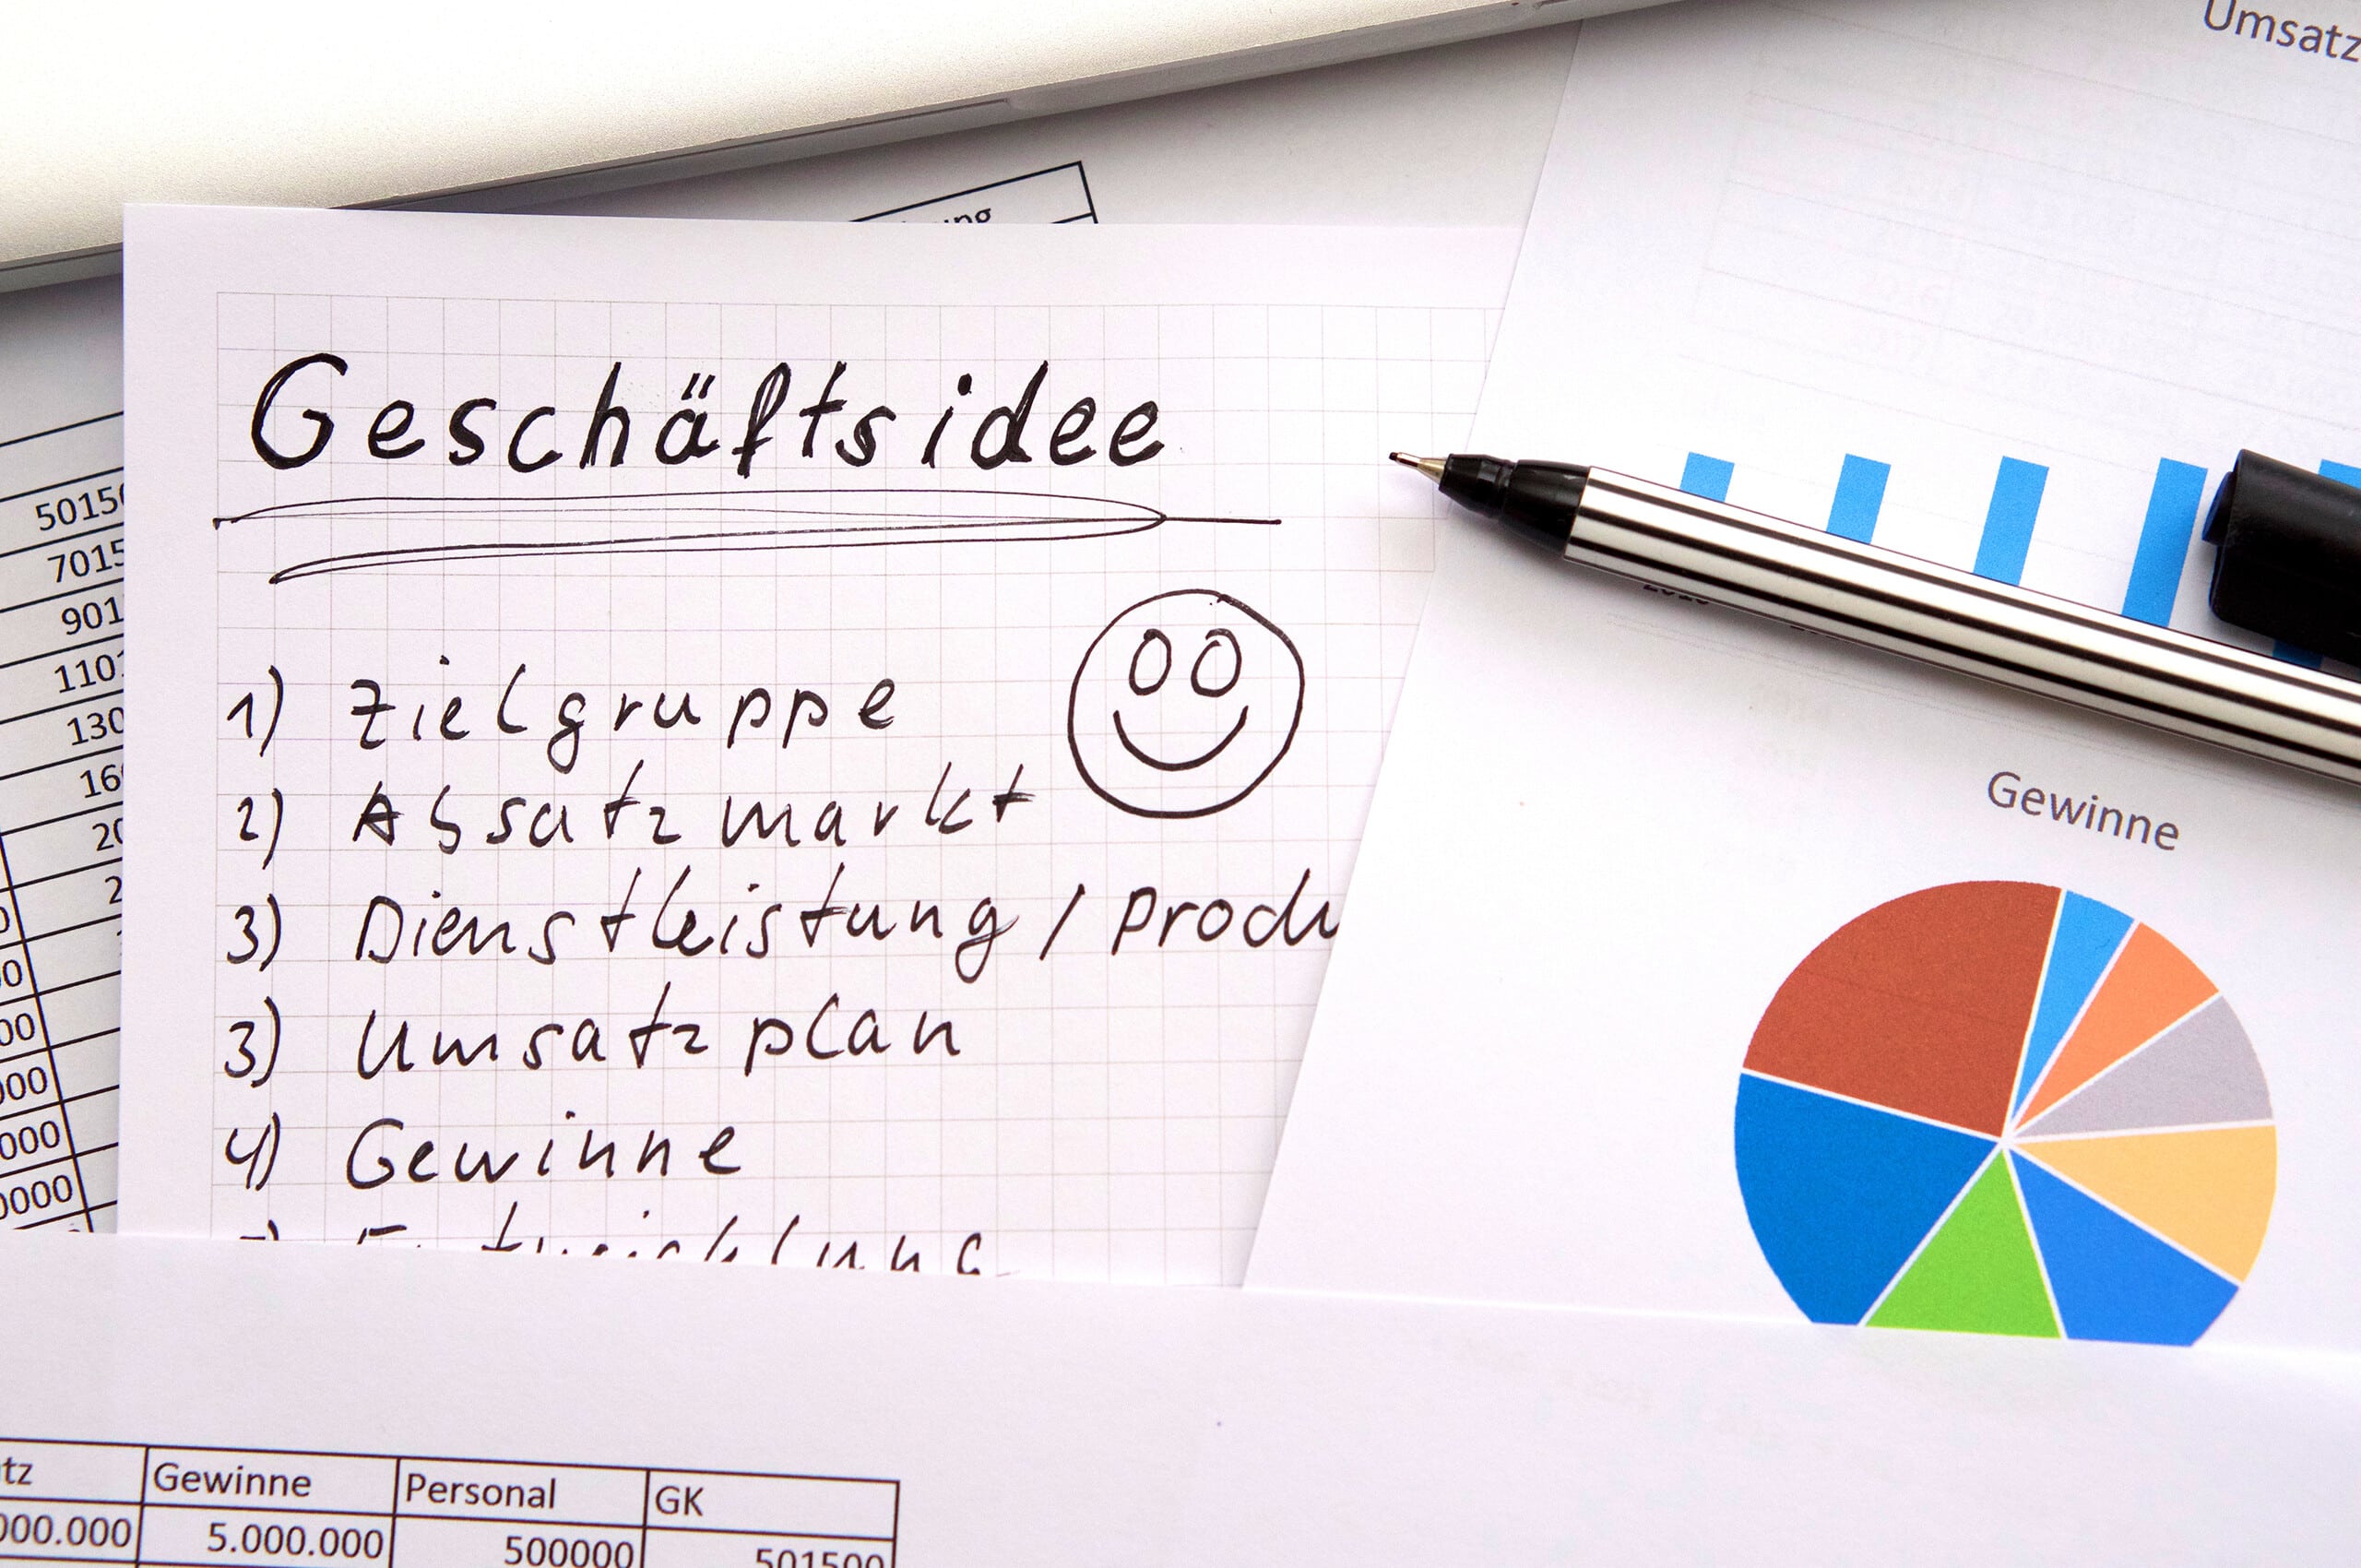 Umsatz
Geschäftsidee
1) Zielgruppe
2) Absatzmarkt
3) Dienstleistung / Produ
3) Umsatzplan
4) Gewinne
Gewinne
5015
7015
901
110
130
16
20
2
00
00
000
000
0000
tz Gewinne Personal GK
000.000 5.000.000 500000 501500